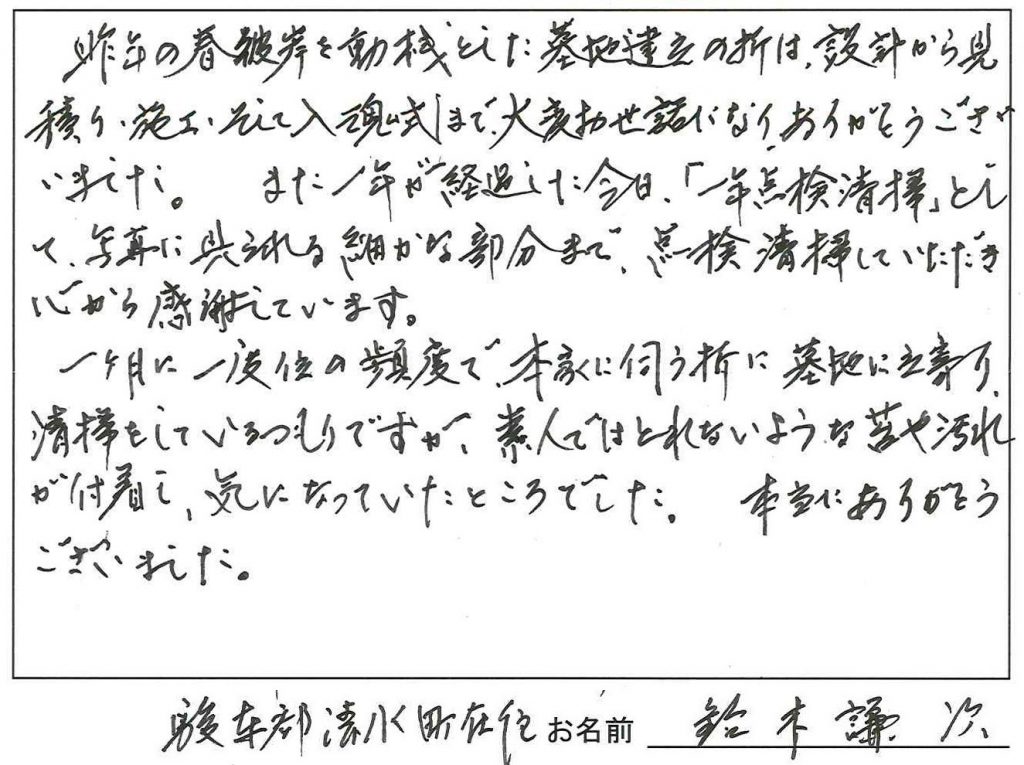 昨年の春彼岸を動機とした墓地建立の折は、設計から見
積り、施工、そして入魂式まで、大変お世話になり、ありがとうござ
いました。 また一年が経過した今日、「一年点検清掃」とし
て、写真に見られる細かな部分まで、点検清掃していただき
心から感謝しています。
一ヶ月に一度位の頻度で、本家に伺う折に墓地に立寄り、
清掃をしているつもりですが、素人ではとれないような苔や汚れ
が付着し、気になっていたところでした。 本当にありがとう
ございました。
駿東郡清水町在住 お名前 鈴木謙次